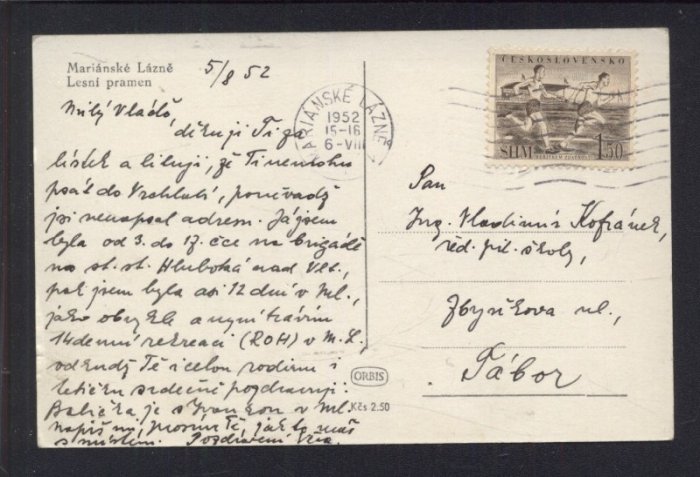 Mariánské Lázně
Lesní pramen
5/8 52
Milý Vláďo,
děkuji Ti za
lístek a lituji, že Ti nemohu
psát do Vrchlabí, poněvadž
jsi nenapsal adresu. Já jsem
byla od 3. do 17. čce na brigádě
na st. st. Hluboká nad Vlt.,
pak jsem byla asi 12 dní v Ml.,
jako obvykle a nyní trávím
14denní rekreaci (ROH) v M. L.,
odkudž Tě i celou rodinu i
tetičku srdečně pozdravuji.
Babička je s Ivankou v Ml.
napiš mi, prosím Tě, jak to máš
s místem. Pozdravení
MARIÁNSKÉ LÁZNĚ
1952
15-16
6-VIII
ČESKOSLOVENSKO
SHM 1,50
Pan
Ing. Vladimír Kofránek,
řed. školy,
Zbyňkova ul.,
Tábor
ORBIS
Kčs 2.50